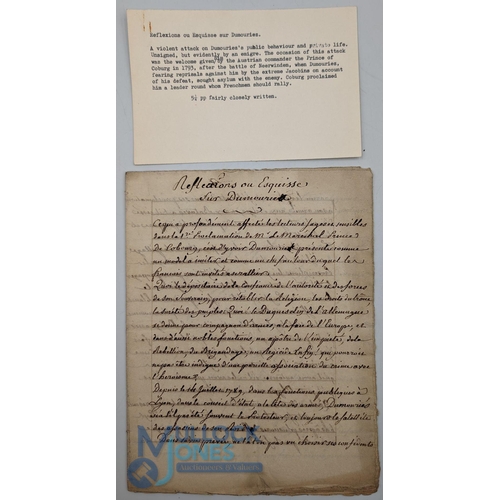 Reflexions ou Esquisse sur Dumouries.
A violent attack on Dumouries's public behaviour and private life.
Unsigned, but evidently by an emigre. The occasion of this attack
was the welcome given by the Austrian commander the Prince of
Coburg in 1793, after the battle of Neerwinden, when Dumouries,
fearing reprisals against him by the extreme Jacobins on account
of his defeat, sought asylum with the enemy. Coburg proclaimed
him a leader round whom Frenchmen should rally.
5½ pp fairly closely written.
Reflexions ou Esquisse
Sur Dumouries
Ce qui a profondément affecté les lecteurs sages et sensibles
dans la Proclamation de Mr. Le Marechal Prince
de Cobourg, c'est d'y voir Dumouries présenté comme
un model a imiter et comme un chef autour duquel les
francois sont invités a se rallier.
Quoi le dépositaire de la confiance de l'autorité et des forces
de son Souverain, pour rétablir la Religion, les droits du trône
la sureté des peuples Quoi! le Duguesclin de l'Allemagne
se donne pour compagnon d'armes, a la face de l'Europe, et
dans d'aussi nobles fonctions, un apôtre de l'impiété, de la
Rebellion, du Brigandage, un Regicide
pareille association du crime avec
l'heroisme?
Depuis le Juillet 1789, dans les fonctions publiques à
Lyon, dans le conseil d'état, a la tête des armées, Dumouries
souvent le Protecteur, et toujours le Satellite
des assassins de son Roi.
MULLOCK
JONES
auctioneers & valuers